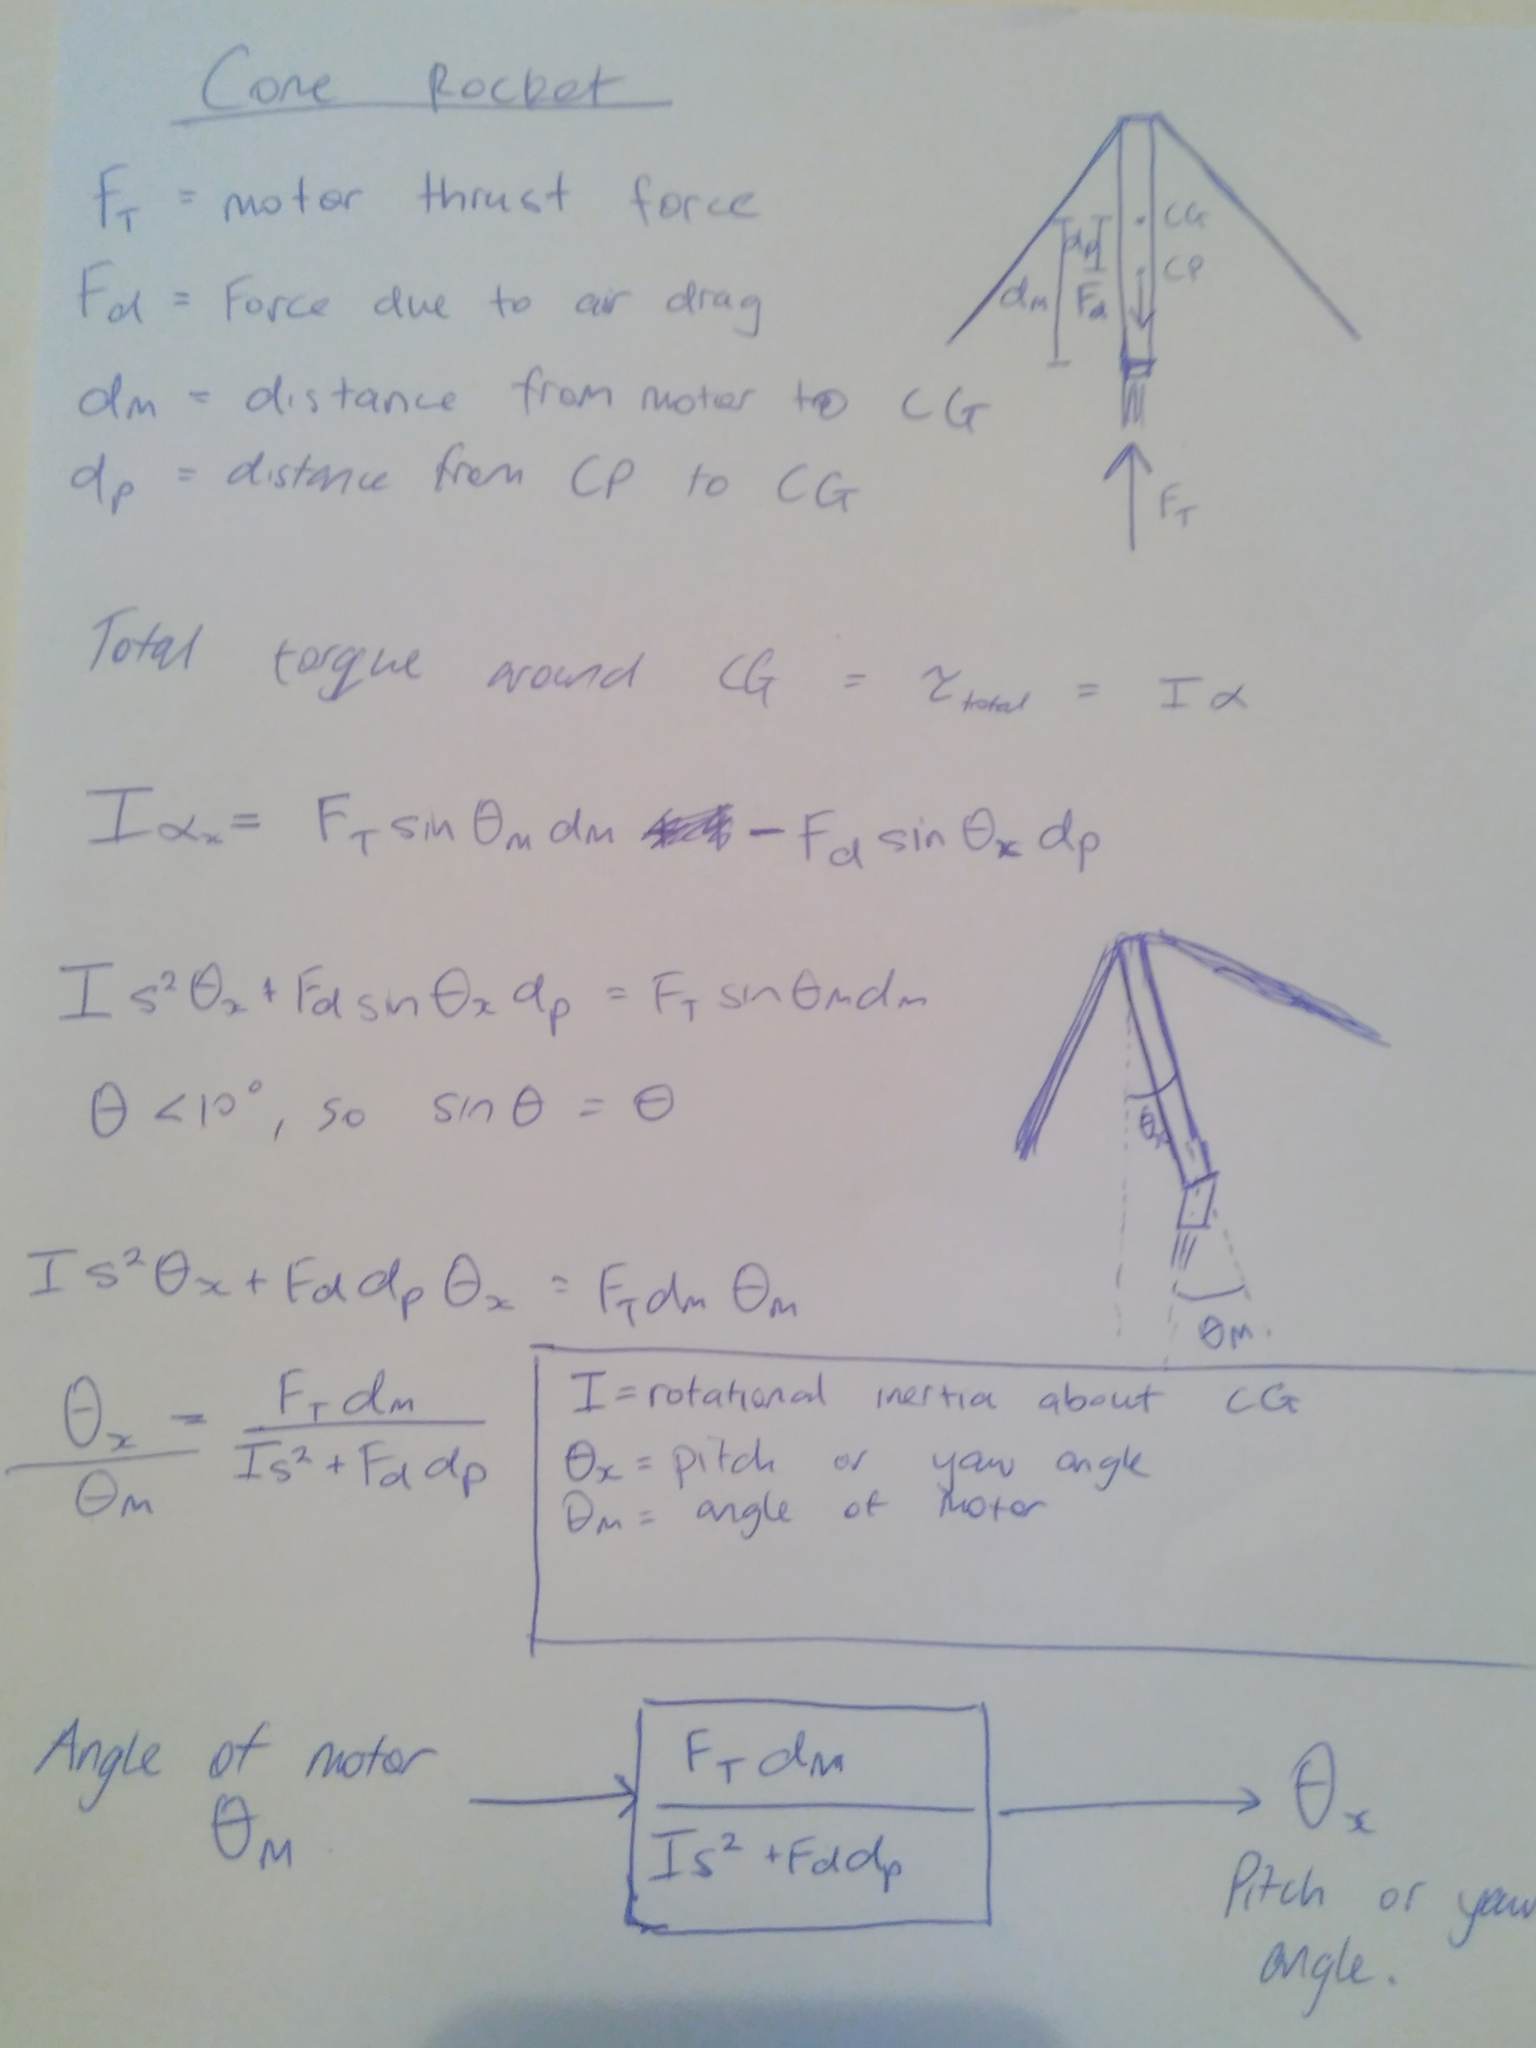 Cone Rocket
F_T = motor thrust force
F_d = Force due to air drag
d_m = distance from motor to CG
d_p = distance from CP to CG
CG
CP
d_p
d_m
F_d
F_T
Total torque around CG = τ_total = Iα
Iα_x = F_T sin θ_M d_m - F_d sin θ_x d_p
I s² θ_x + F_d sin θ_x d_p = F_T sin θ_M d_m
θ < 10°, so sin θ = θ
θ_x
θ_M
I s² θ_x + F_d d_p θ_x = F_T d_m θ_M
θ_x / θ_M = F_T d_m / I s² + F_d d_p
I = rotational inertia about CG
θ_x = pitch or yaw angle
θ_M = angle of motor
Angle of motor
θ_M
F_T d_M
I s² + F_d d_p
θ_x
Pitch or yaw
angle.